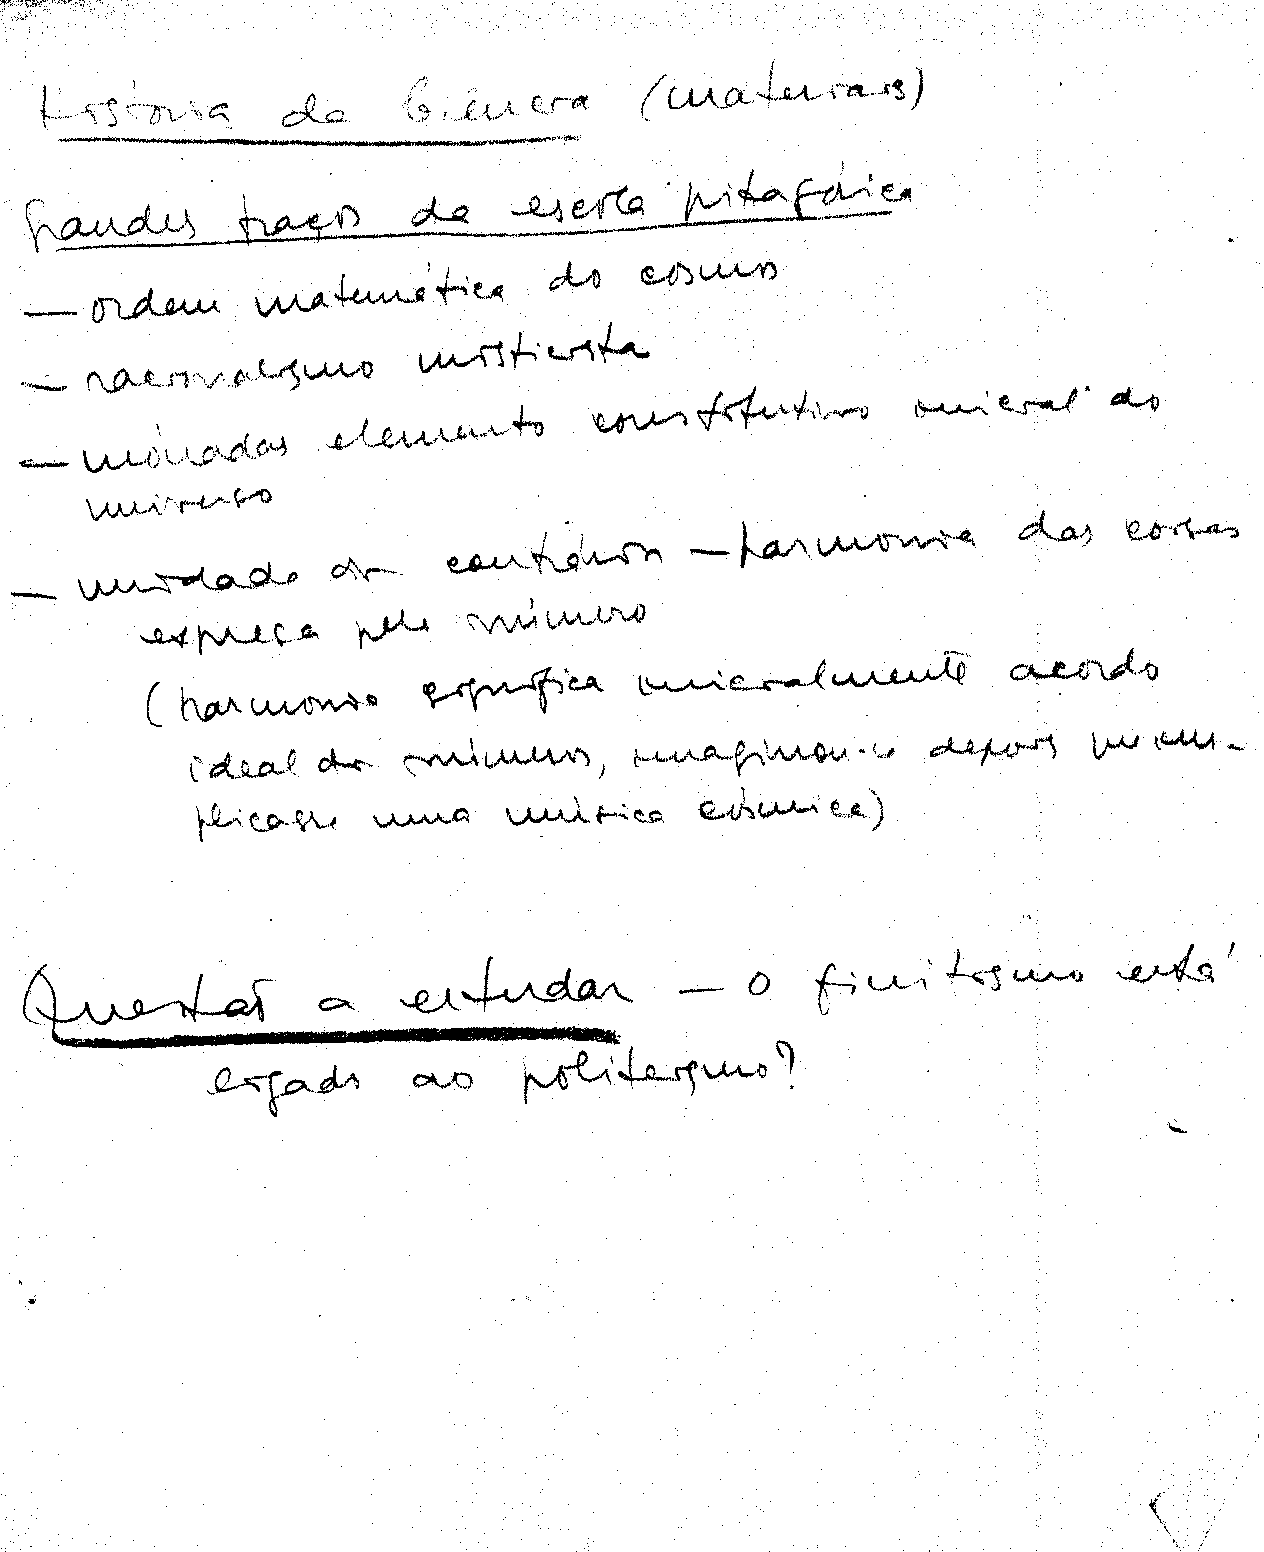 História da Ciência (materiais)
Grandes traços da escola pitagórica
— ordem matemática do cosmos
— racionalismo misticista
— mónadas elemento constitutivo inicial do
universo
— unidade dos contrários — harmonia das coisas
expressa pelo número
(harmonia significa inicialmente acordo
ideal dos números, imaginou-se depois que im-
plicasse uma música cósmica)
Questão a estudar — O finitismo está
ligado ao politeísmo?